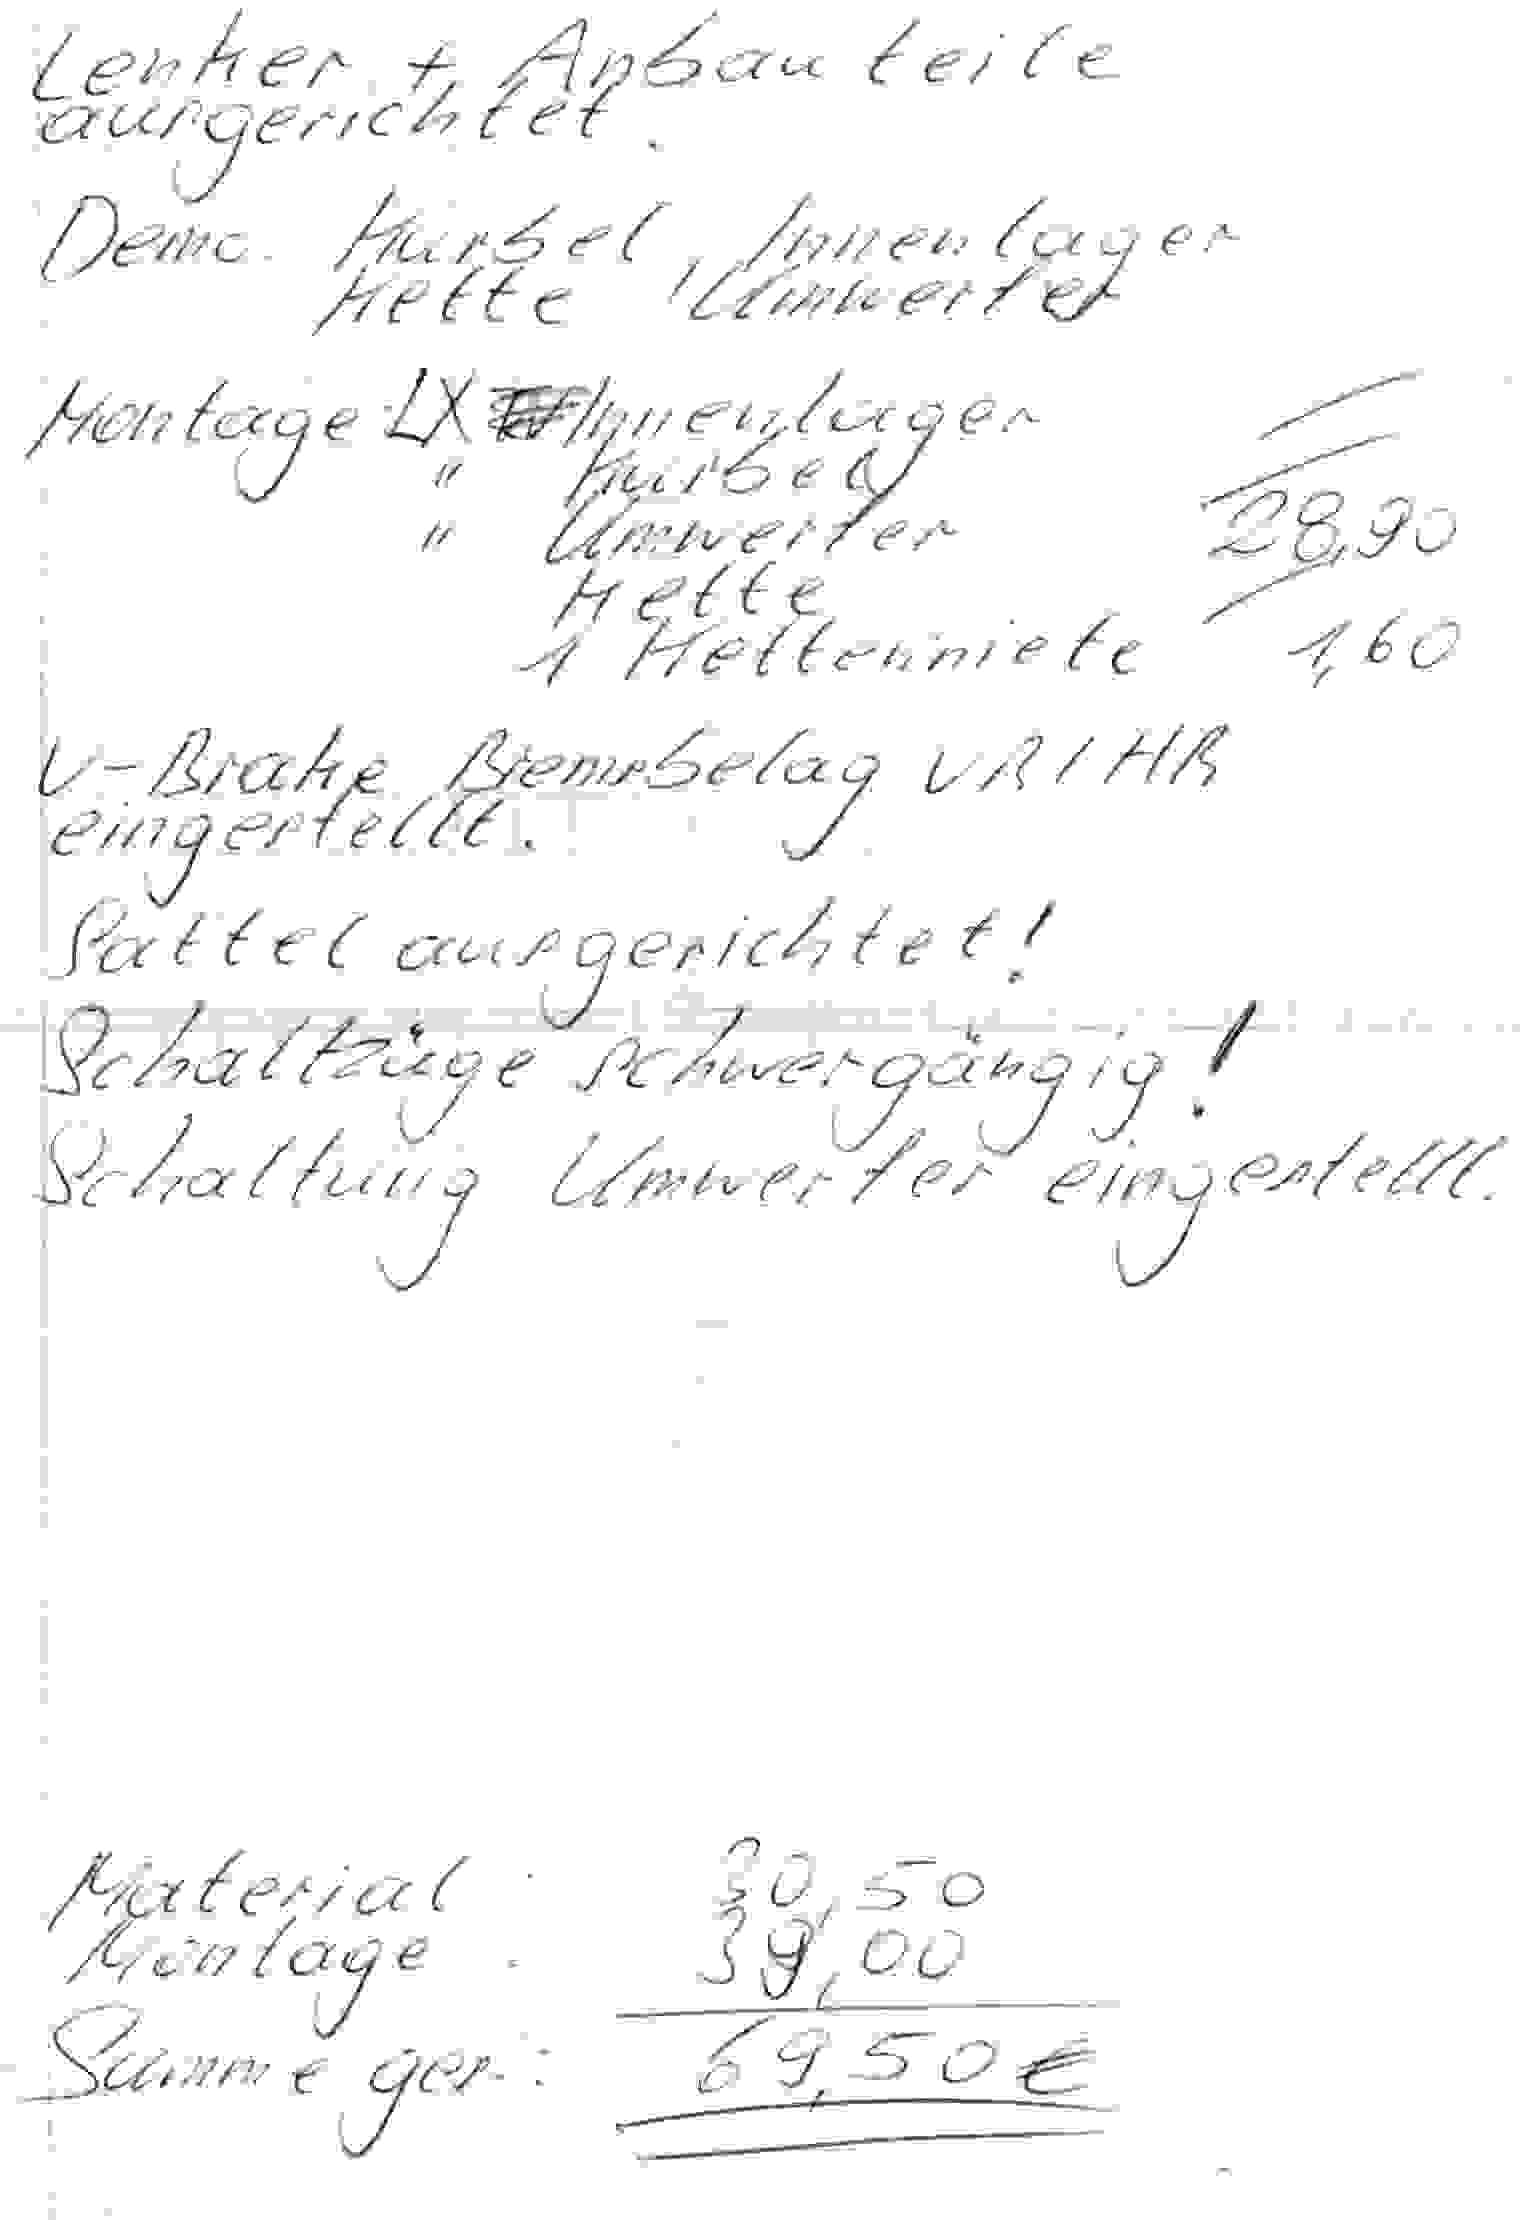 Lenker + Anbauteile
ausgerichtet.
Demo. Kurbel, Innenlager
Kette, Umwerfer
Montage LX Innenlager
" Kurbel
" Umwerfer 28,90
Kette
1 Kettenniete 1,60
V-Brake Bremsbelag VR/HR
eingestellt.
Sattel ausgerichtet!
Schaltzüge schwergängig!
Schaltung Umwerfer eingestellt.
Material : 30,50
Montage : 39,00
Summe ges.: 69,50 €